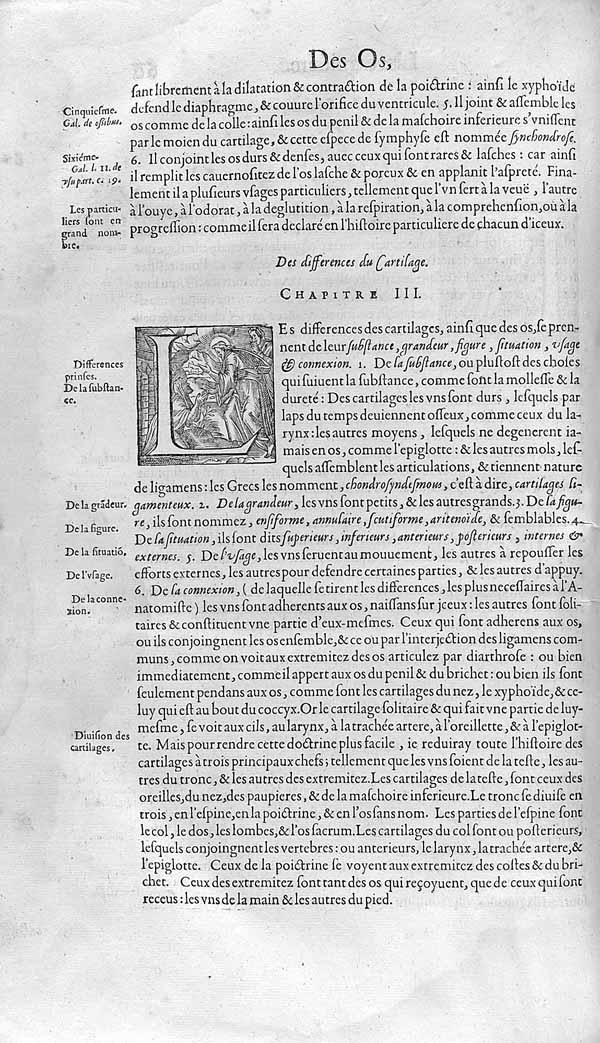 Des Os,
ſant librement à la dilatation & contraction de la poictrine : ainſi le xyphoïde
Cinquieſme.
Gal. de oſsibus.
defend le diaphragme, & couure l'orifice du ventricule. 5. Il joint & aſſemble les
os comme de la colle: ainſi les os du penil & de la maſchoire inferieure s'vniſſent
par le moien du cartilage, & cette eſpece de ſymphyſe eſt nommée ſynchondroſe.
Sixiéme.
Gal. l. 11. de
vſu part. c. 19.
6. Il conjoint les os durs & denſes, auec ceux qui ſont rares & laſches : car ainſi
il remplit les cauernoſitez de l'os laſche & poreux & en applanit l'aſpreté. Fina-
lement il a pluſieurs vſages particuliers, tellement que l'vn ſert à la veuë, l'autre
Les particu-
liers ſont en
grand nom-
bre.
à l'ouye, à l'odorat, à la deglutition, à la reſpiration, à la comprehenſion, ou à la
progreſſion : comme il ſera declaré en l'hiſtoire particuliere de chacun d'iceux.
Des differences du Cartilage.
CHAPITRE III.
LEs differences des cartilages, ainſi que des os, ſe pren-
nent de leur ſubſtance, grandeur, figure, ſituation, vſage
Differences
prinſes.
De la ſubſtan-
ce.
& connexion. 1. De la ſubſtance, ou pluſtoſt des choſes
qui ſuiuent la ſubſtance, comme ſont la molleſſe & la
dureté : Des cartilages les vns ſont durs, leſquels par
laps du temps deuiennent oſſeux, comme ceux du la-
rynx: les autres moyens, leſquels ne degenerent ia-
mais en os, comme l'epiglotte : & les autres mols, leſ-
quels aſſemblent les articulations, & tiennent nature
de ligamens: les Grecs les nomment, chondroſyndeſmous, c'eſt à dire, cartilages li-
De la grãdeur.
gamenteux. 2. De la grandeur, les vns ſont petits, & les autres grands. 3. De la figu-
De la figure.
re, ils ſont nommez, enſiforme, annulaire, ſcutiforme, aritenoïde, & ſemblables. 4.
De la ſituatiõ.
De la ſituation, ils ſont dits ſuperieurs, inferieurs, anterieurs, poſterieurs, internes &
externes. 5. De l'vſage, les vns ſeruent au mouuement, les autres à repouſſer les
De l'vſage.
efforts externes, les autres pour defendre certaines parties, & les autres d'appuy.
De la conne-
xion.
6. De la connexion, (de laquelle ſe tirent les differences, les plus neceſſaires à l'A-
natomiſte) les vns ſont adherents aux os, naiſſans ſur jceux: les autres ſont ſoli-
taires & conſtituent vne partie d'eux-meſmes. Ceux qui ſont adherens aux os,
ou ils conjoingnent les os enſemble, & ce ou par l'interjection des ligamens com-
muns, comme on voit aux extremitez des os articulez par diarthroſe : ou bien
immediatement, comme il appert aux os du penil & du brichet : ou bien ils ſont
ſeulement pendans aux os, comme ſont les cartilages du nez, le xyphoïde, & ce-
luy qui eſt au bout du coccyx. Or le cartilage ſolitaire & qui fait vne partie de luy-
Diuiſion des
cartilages.
meſme, ſe voit aux cils, au larynx, à la trachée artere, à l'oreillette, & à l'epiglot-
te. Mais pour rendre cette doctrine plus facile, ie reduiray toute l'hiſtoire des
cartilages à trois principaux chefs; tellement que les vns ſoient de la teſte, les au-
tres du tronc, & les autres des extremitez. Les cartilages de la teſte, ſont ceux des
oreilles, du nez, des paupieres, & de la maſchoire inferieure. Le tronc ſe diuiſe en
trois, en l'eſpine, en la poictrine, & en l'os ſans nom. Les parties de l'eſpine ſont
le col, le dos, les lombes, & l'os ſacrum. Les cartilages du col ſont ou poſterieurs,
leſquels conjoingnent les vertebres : ou anterieurs, le larynx, la trachée artere, &
l'epiglotte. Ceux de la poictrine ſe voyent aux extremitez des coſtes & du bri-
chet. Ceux des extremitez ſont tant des os qui reçoyuent, que de ceux qui ſont
receus : les vns de la main & les autres du pied.